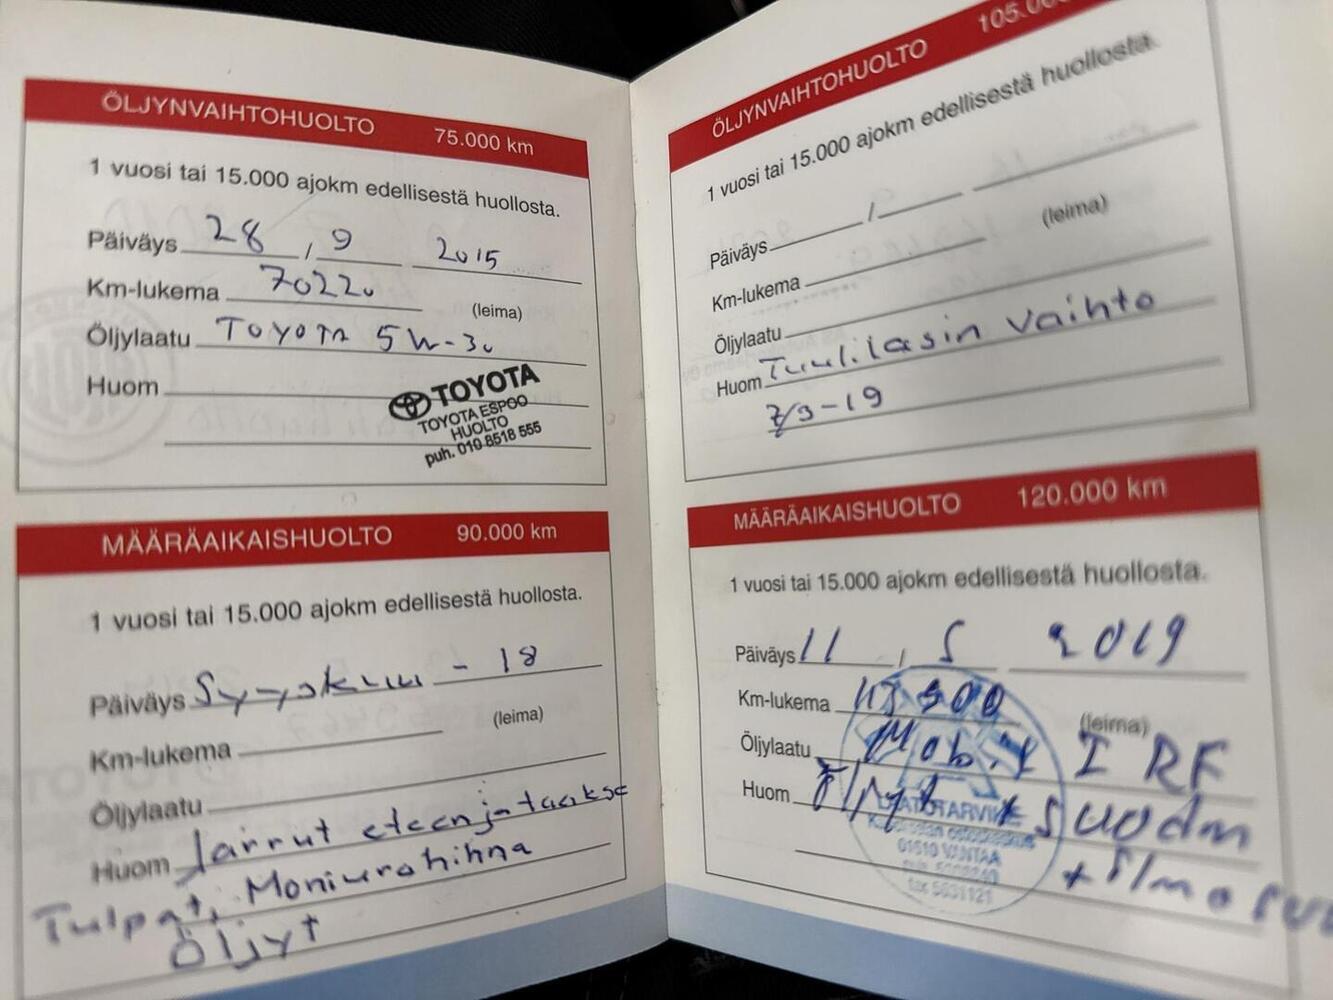 ÖLJYNVAIHTOHUOLTO 75.000 km
1 vuosi tai 15.000 ajokm edellisestä huollosta.
Päiväys 28 / 9 2015
Km-lukema 70220
(leima)
Öljylaatu TOYOTA 5W-30
Huom
TOYOTA
TOYOTA ESPOO
HUOLTO
puh. 010 8518 555
MÄÄRÄAIKAISHUOLTO 90.000 km
1 vuosi tai 15.000 ajokm edellisestä huollosta.
Päiväys Syyskuu - 18
(leima)
Km-lukema
Öljylaatu
Huom Jarrut eteen ja taakse
Tulpat, Moniurahihna
Öljyt
ÖLJYNVAIHTOHUOLTO
1 vuosi tai 15.000 ajokm edellisestä huollosta.
Päiväys /
(leima)
Km-lukema
Öljylaatu
Huom Tuulilasin vaihto
7/3-19
MÄÄRÄAIKAISHUOLTO 120.000 km
1 vuosi tai 15.000 ajokm edellisestä huollosta.
Päiväys 11 / 5 2019
Km-lukema
(leima)
Öljylaatu
Huom Öljyt + suod
01510 VANTAA
fax 5631121